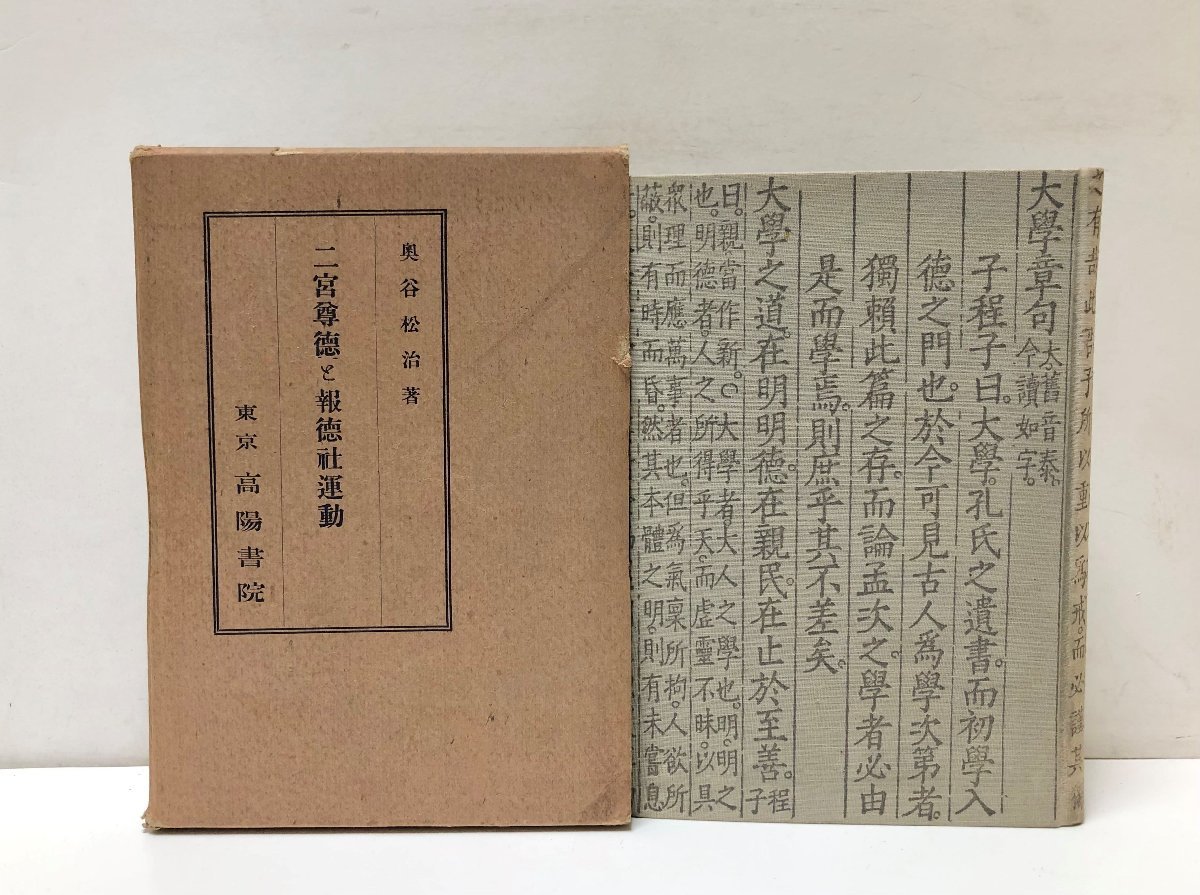 奥谷松治著
二宮尊德と報德社運動
東京 高陽書院
所以重以爲戒。而必謹其
大學章句
太舊音泰。
今讀如字。
子程子曰。大學。孔氏之遺書。而初學入
德之門也。於今可見古人爲學次第者。
獨賴此篇之存。而論孟次之。學者必由
是而學焉。則庶乎其不差矣。
大學之道。在明明德。在親民。在止於至善。程子
曰。親當作新。○大學者。大人之學也。明。明之
也。明德者。人之所得乎天。而虛靈不昧。以具
衆理而應萬事者也。但爲氣稟所拘。人欲所
蔽。則有時而昏。然其本體之明。則有未嘗息